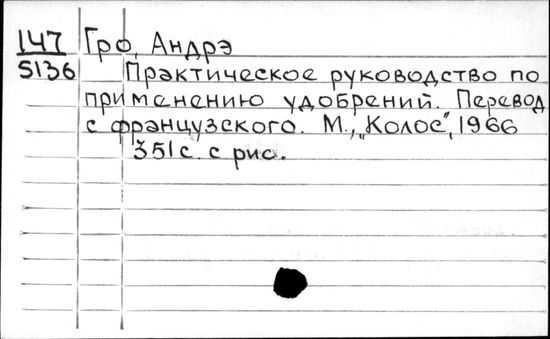 147 Гро, Андрэ
5136 Практическое руководство по
применению удобрений. Перевод
с французского. М., „Колос", 1966
351 с. с рис.